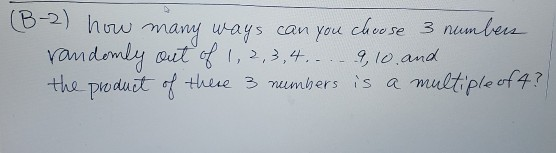 (B-2) how many ways can you choose 3 numbers
randomly out of 1, 2, 3, 4. - - - . 9, 10. and
the product of these 3 numbers is a multiple of 4?